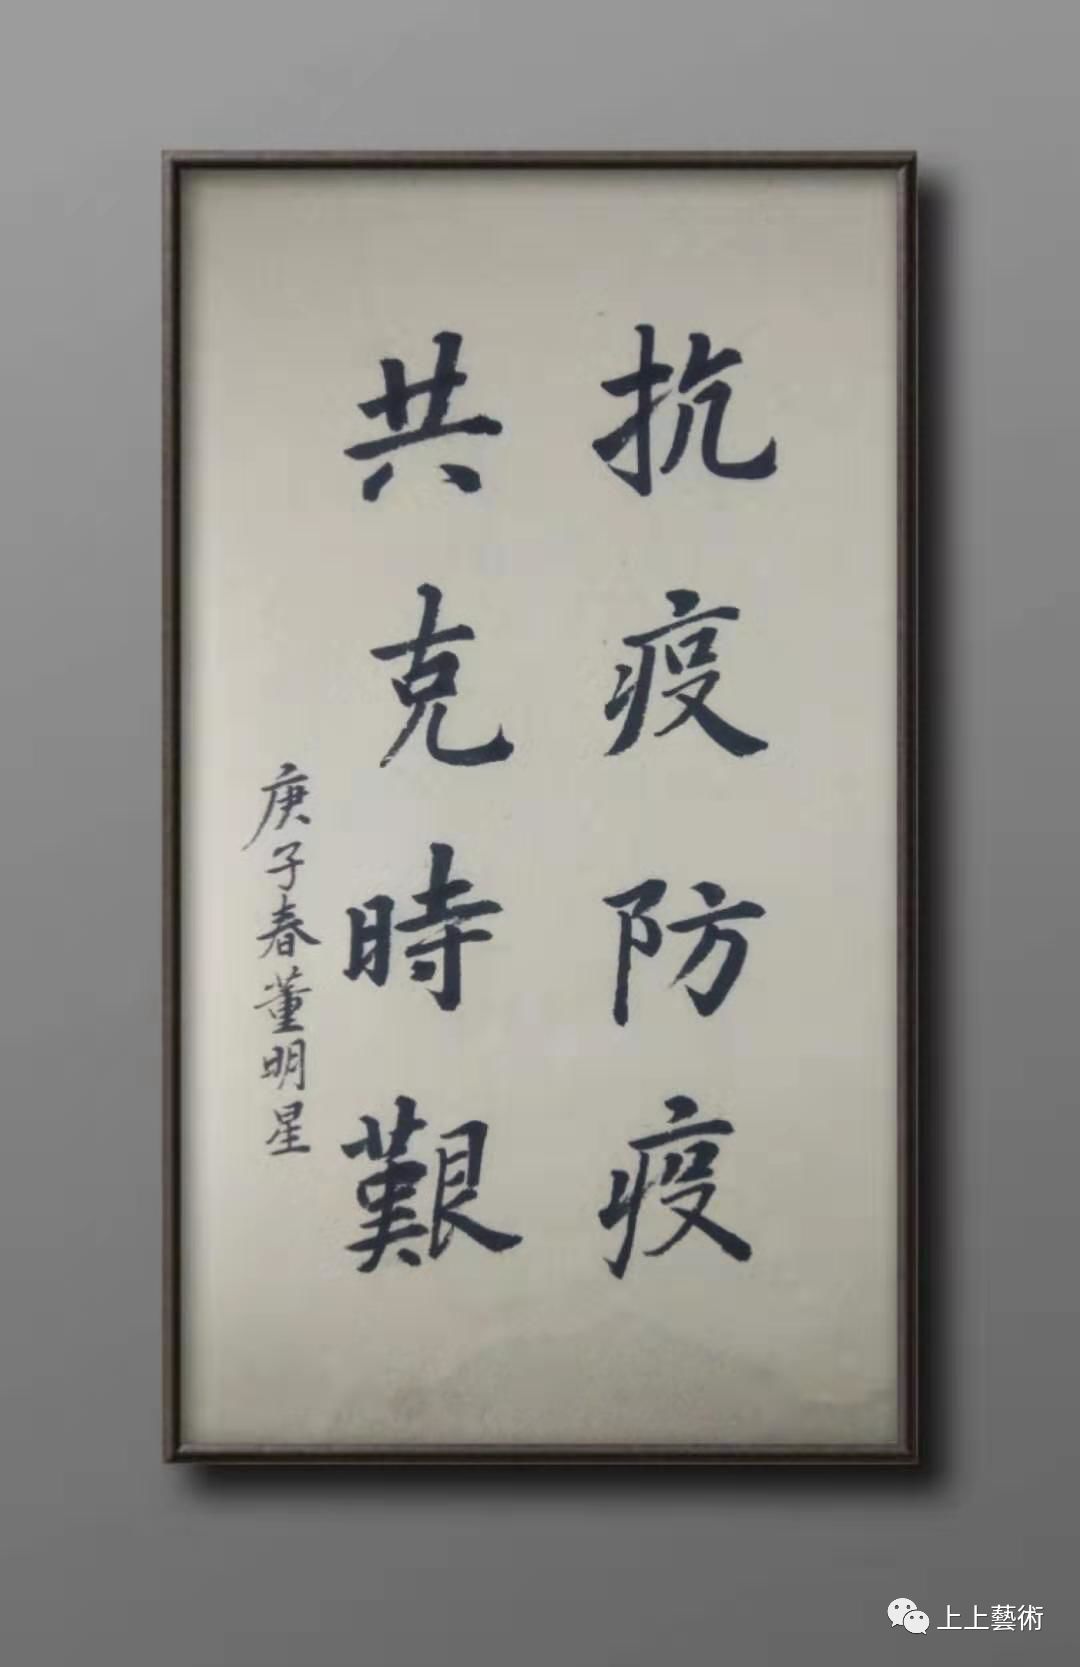 抗疫防疫
共克時艱
庚子春董明星
上上藝術